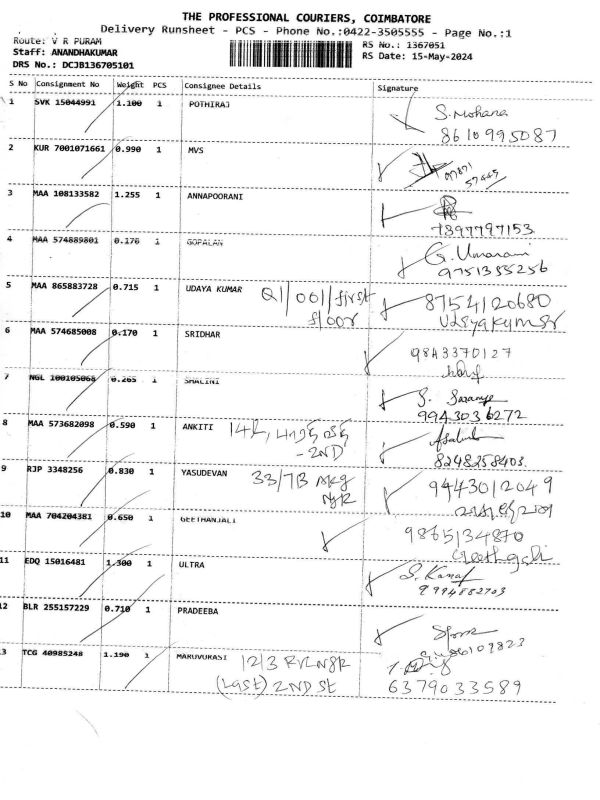 THE PROFESSIONAL COURIERS, COIMBATORE
Delivery Runsheet - PCS - Phone No.:0422-3505555 - Page No.:1
Route: V R PURAM
Staff: ANANDHAKUMAR
DRS No.: DCJB136705101
RS No.: 1367051
RS Date: 15-May-2024
S No Consignment No Weight PCS Consignee Details Signature
1 SVK 15044991 1.100 1 POTHIRAJ S. Mohana
8610995087
2 KUR 7001071661 0.990 1 MVS
3 MAA 108133582 1.255 1 ANNAPOORANI
7397797153
4 MAA 574889801 0.170 1 GOPALAN G. Umarani
9751355256
5 MAA 865883728 0.715 1 UDAYA KUMAR Q1/001/first floor 8754120680
Udayakumar
6 MAA 574685008 0.170 1 SRIDHAR 9843370127
7 NGL 100105068 0.265 1 SHALINI S. Saranya
9943036272
8 MAA 573682098 0.590 1 ANKITI 142,
- 2ND
8248258403
9 RJP 3348256 0.830 1 YASUDEVAN 33/7B NKG NGR 9443012049
10 MAA 704204381 0.650 1 GEETHANJALI 9865134870
Geethanjali
11 EDQ 15016481 1.300 1 ULTRA S. Kanaf
9994882703
12 BLR 255157229 0.710 1 PRADEEBA
13 TCG 40985248 1.190 1 MARUVURASI 1213 RVL NGR
(Last) 2ND St 6379033589